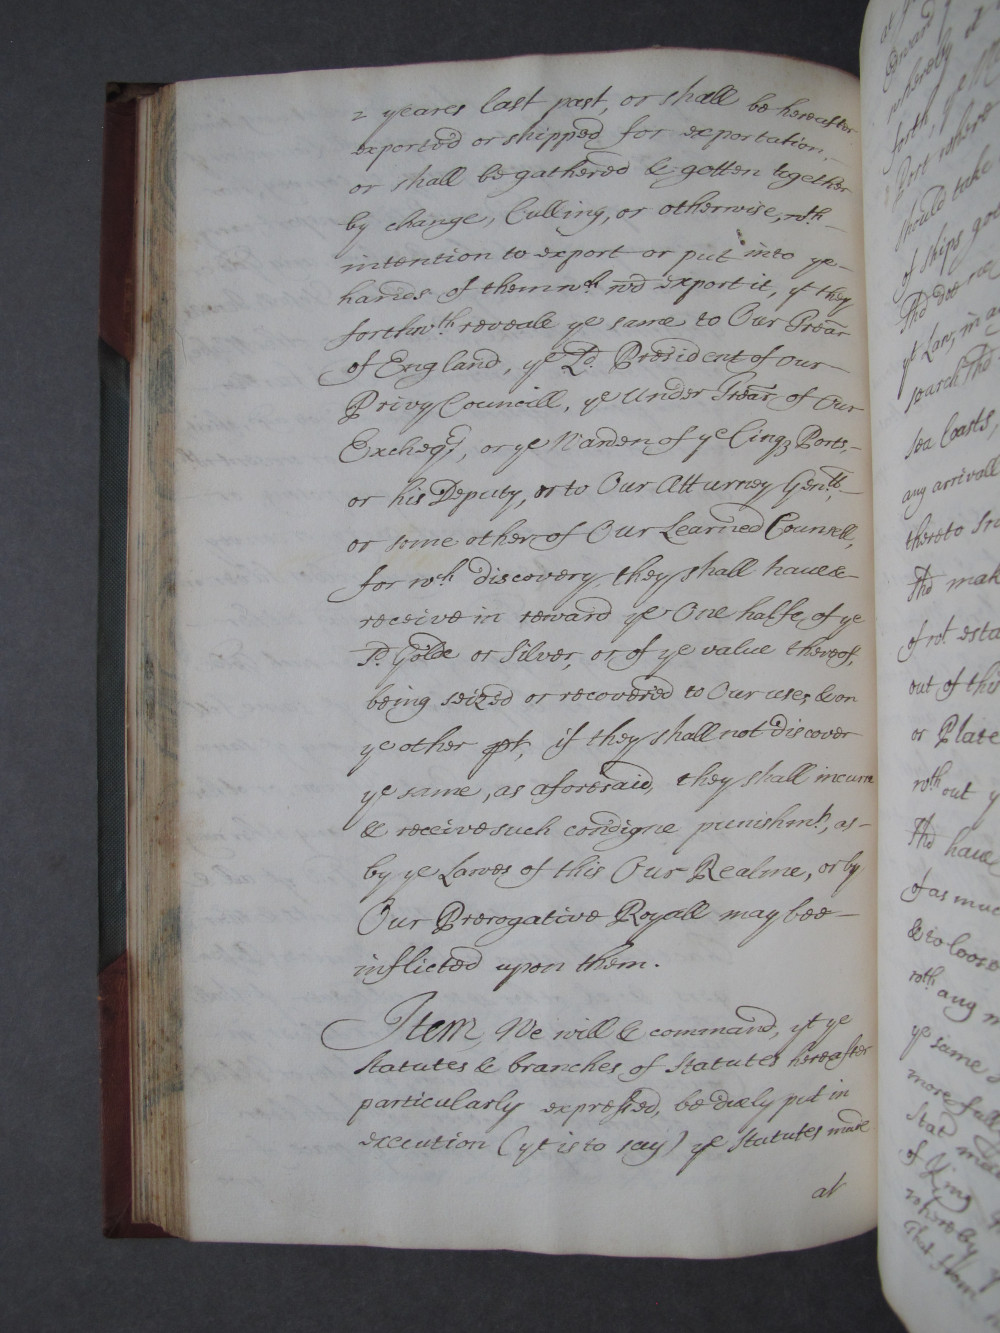 2 yeares last past, or shall be hereafter
exported or shipped for exportation,
or shall be gathered & gotten together
by change, Culling, or otherwise, wth
intention to export or put into ye
hands of them wch wd export it, yt they
forthwth reveale ye same to Our Trear
of England, ye Ld. President of our
Privy Councill, ye Under Trear of Our
Excheqr, or ye Warden of ye Cinqz Ports,
or his Deputy, or to Our Atturney Genll.
or some other of Our Learned Councell,
for wch discovery they shall have &
receive in reward ye One halfe of ye
sd. Golde or Silver, or of ye value thereof,
being seized or recovered to Our use, & on
ye other pt, if they shall not discover
ye same, as aforesaid, they shall incurre
& receive such condigne punishmt, as
by ye Lawes of this Our Realme, or by
Our Prerogative Royall may bee
inflicted upon them.
Item, We will & command, yt ye
Statutes & branches of Statutes hereafter
particularly expressed, be duely put in
execution (yt is to say) ye Statutes made
at
should take
of ships
yt Law, in
search
Sea Coasts,
any arrivall
thereto
mak
out of this
or Plate
wthout y
have
of as muc
& to loose
wth any m
ye same
more full
Stat made
of King
whereby